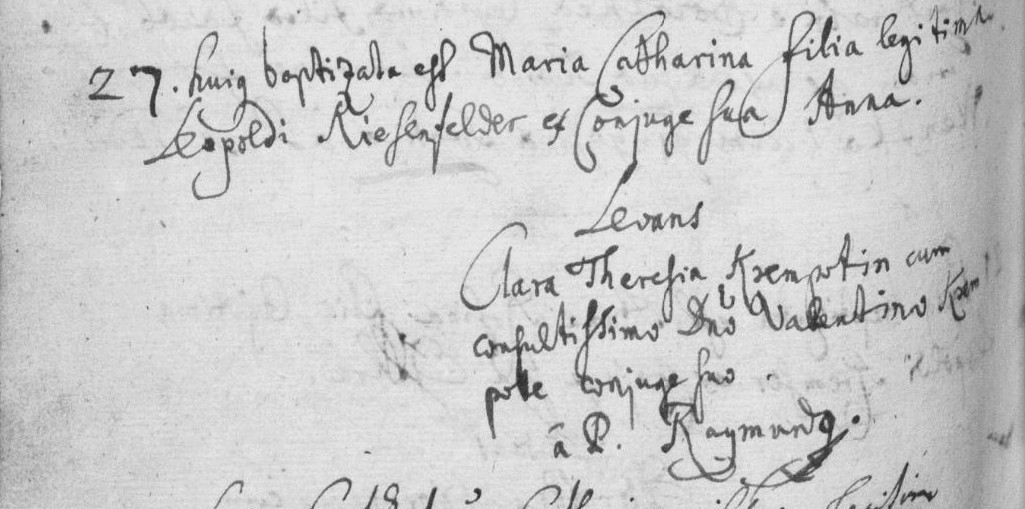 27. huig baptizata est Maria Catharina filia legitima
Leopoldi Riesenfelder ex Conjuge sua Anna.
Levans
Clara Theresia Krempotin cum
consultissimo Dnō Valentino Krem
pote conjuge suo.
à P. Raymundo.